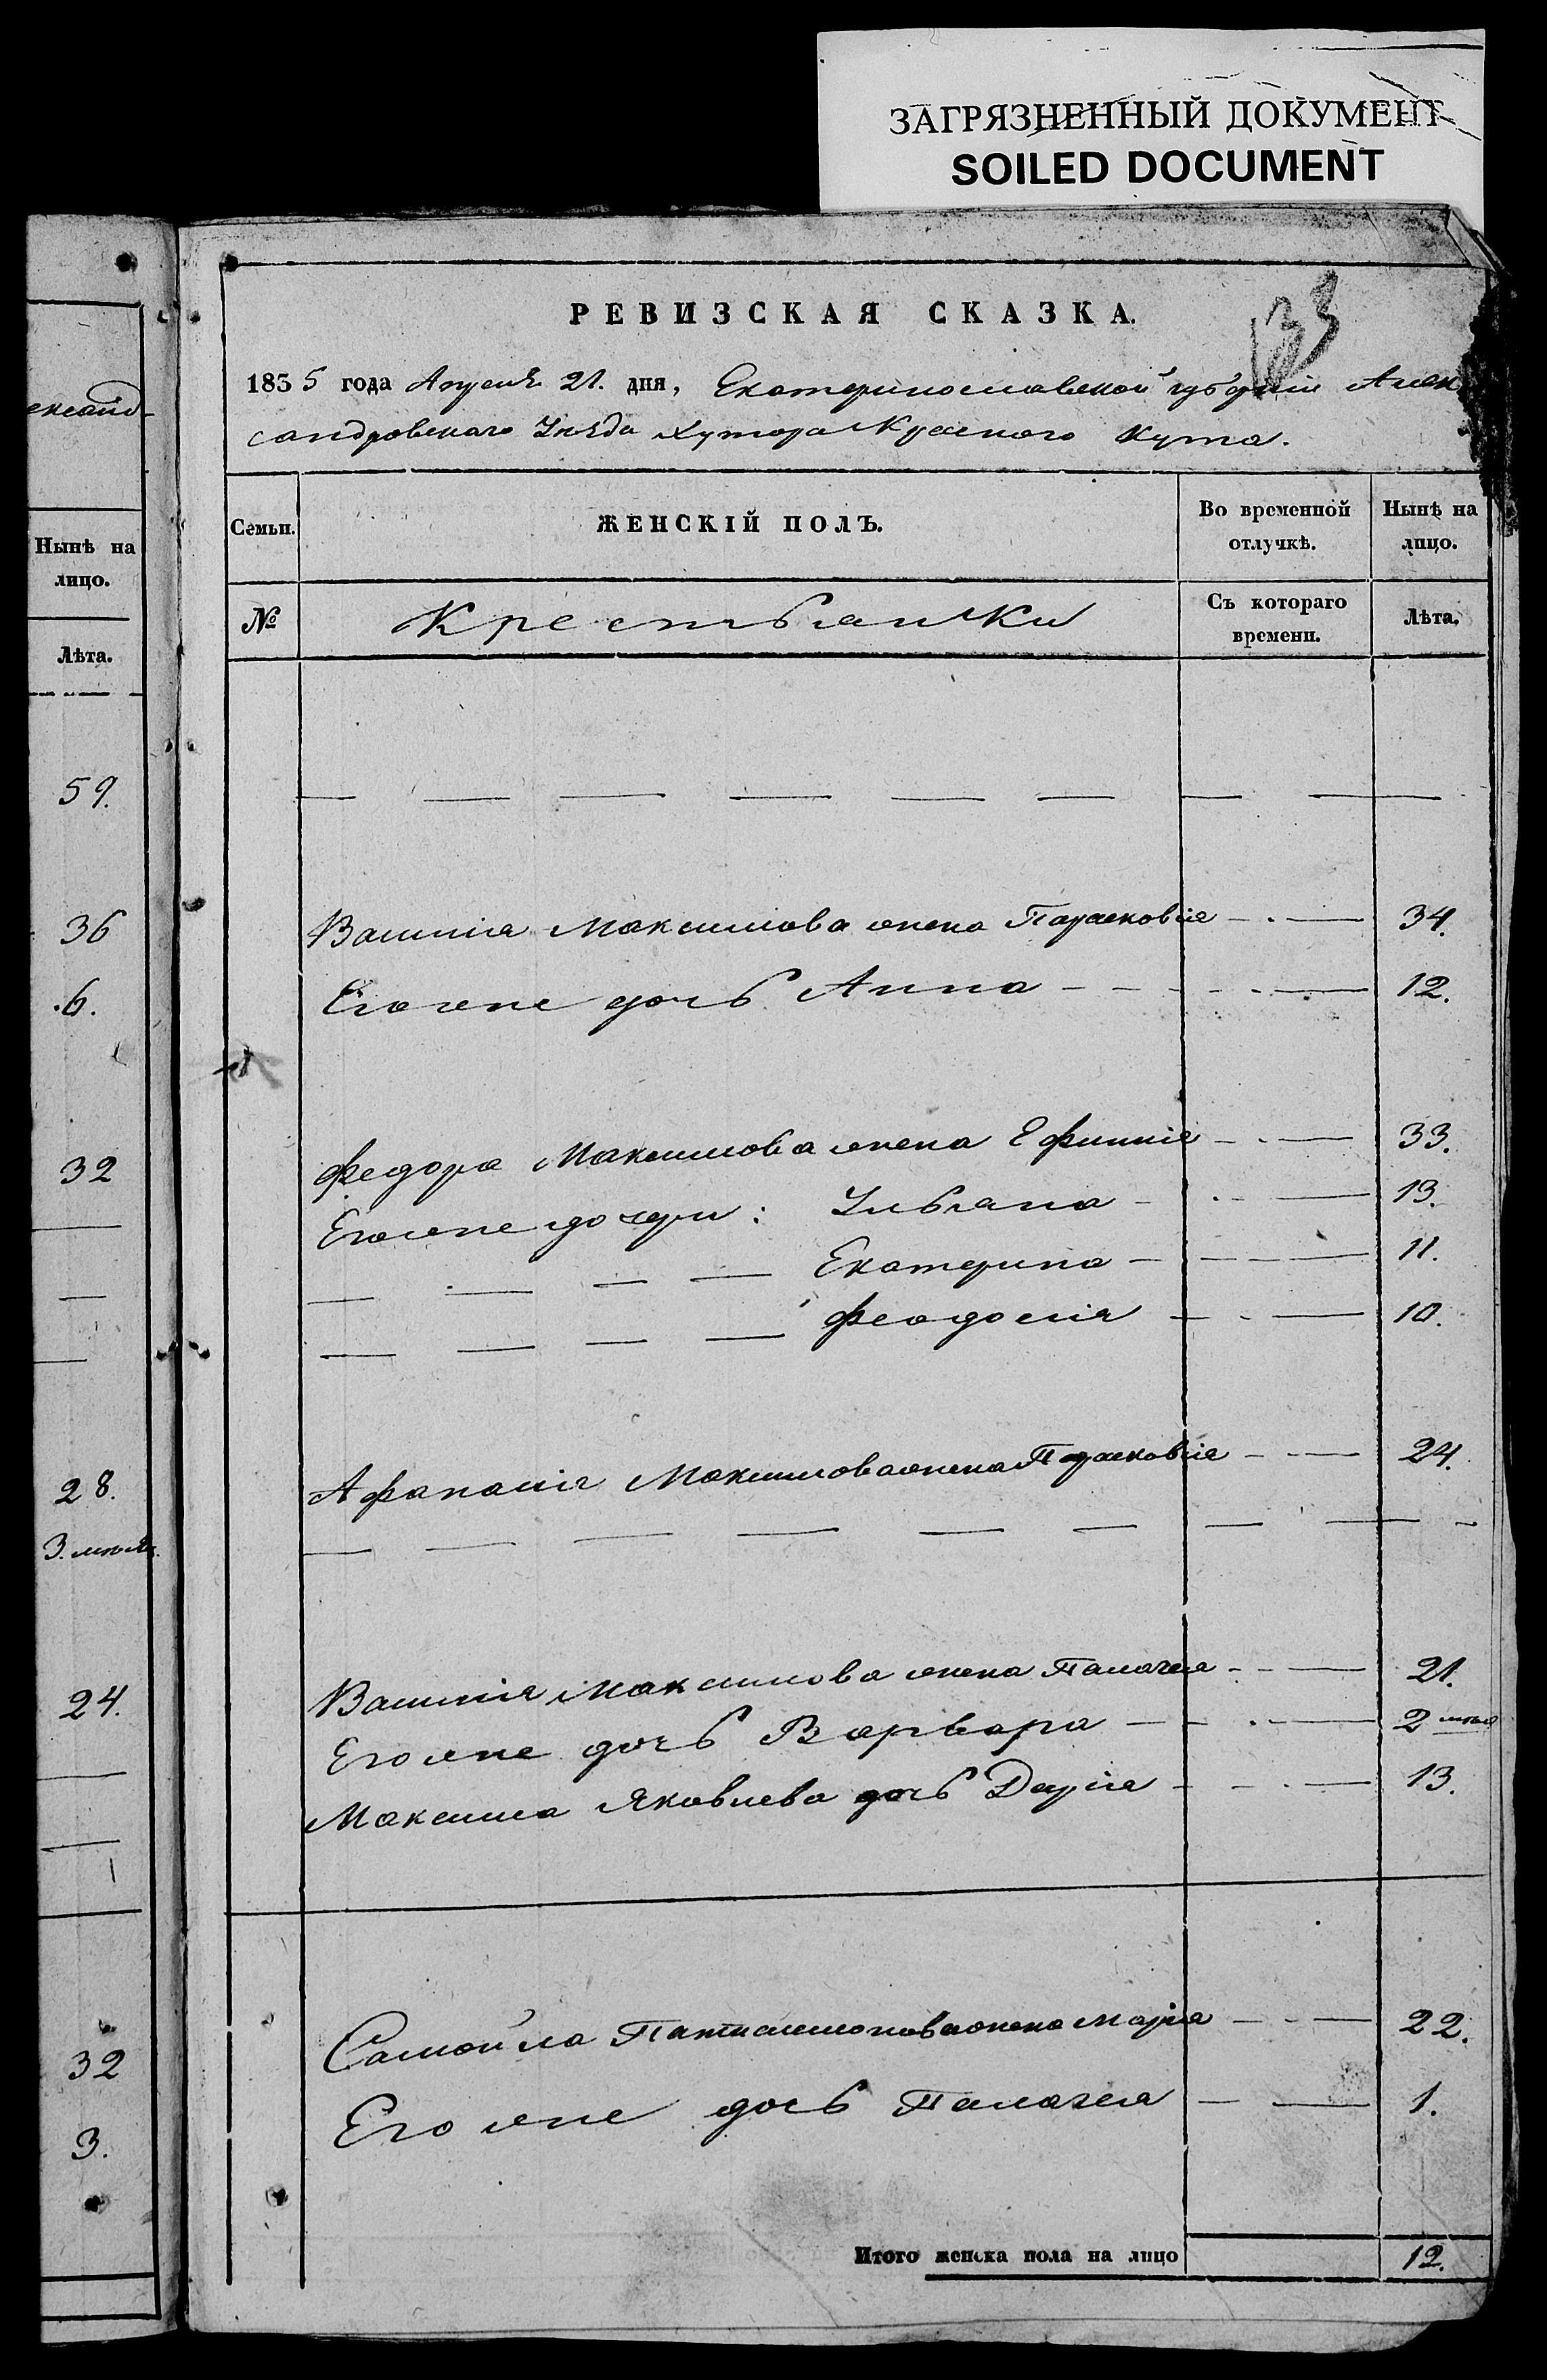 ЗАГРЯЗНЕННЫЙ ДОКУМЕНТ
SOILED DOCUMENT
ександ-
Нынѣ на
лицо.
Лѣта.
59.
36
6.
32
28.
3.
24.
32
3.
РЕВИЗСКАЯ СКАЗКА.
133
1835 года Апреля 21. дня, Екатеринославской губерніи Алек
сандровскаго Уѣзда Хутора Красного Кута.
Семьи.
ЖЕНСКІЙ ПОЛЪ.
Во временной
отлучкѣ.
Нынѣ на
лицо.
№
Крестьянки
Съ котораго
времени.
Лѣта.
Василія Максимова жена Парасковія 34.
Его жене дочь Анна 12.
Федора Максимова жена Ефимія 33.
Его жене дочери: Ульяна 13.
Екатерина 11.
Феодосія 10.
Афанасія Максимова жена Парасковія 24.
Василія Максимова жена Палагея 21.
Его жене дочь Варвара 2
Максима Яковлева дочь Дарія 13.
Самойла жена Марія 22.
Его жене дочь Палагея 1.
Итого женска пола на лицо 12.